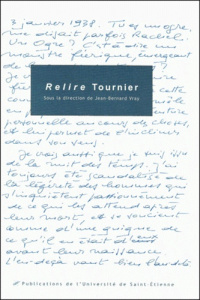 3 janvier 1938. Tu es un ogre,
me disait parfois Rachel.
Un Ogre ? C'est à dire un
monstre féerique, émergeant
Relire Tournier
Sous la direction de Jean-Bernard Vray
et lui permet de
Je crois aussi que je suis issu
de la nuit des temps. J'ai
toujours été scandalisé de
la légèreté des hommes qui
s'inquiètent passionnément
de ce qui les attend après
leur mort, et se soucient
comme d'une guigne de
ce qu'il en était d'eux
avant leur naissance.
L'en-deçà vaut bien l'au-delà
Publications de l'Université de Saint-Étienne